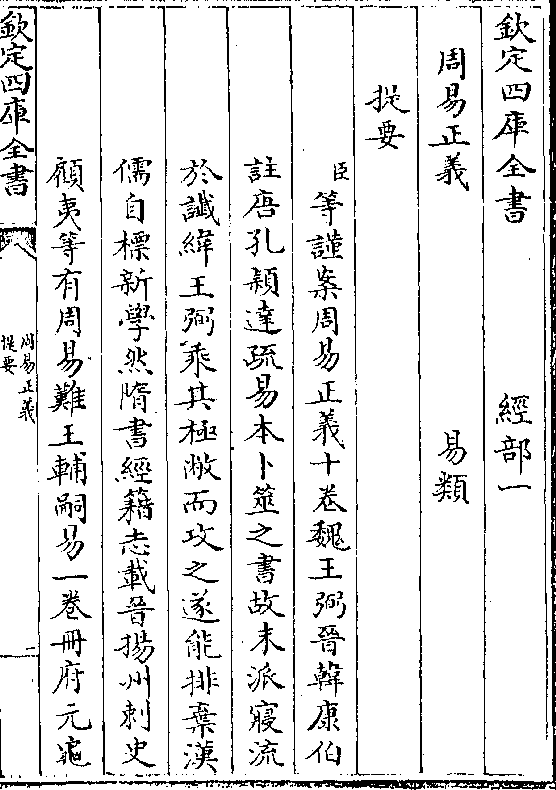 欽定四庫全書　經部一
周易正義　易類
提要
臣等謹案周易正義十卷魏王弼晉韓康伯
註唐孔穎達疏易本卜筮之書故末派寖流
於讖緯王弼乘其極敝而攻之遂能排棄漢
儒自標新學然隋書經籍志載晉揚州刺史
顧夷等有周易難王輔嗣易一卷冊府元龜
欽定四庫全書
周易正義
提要
一